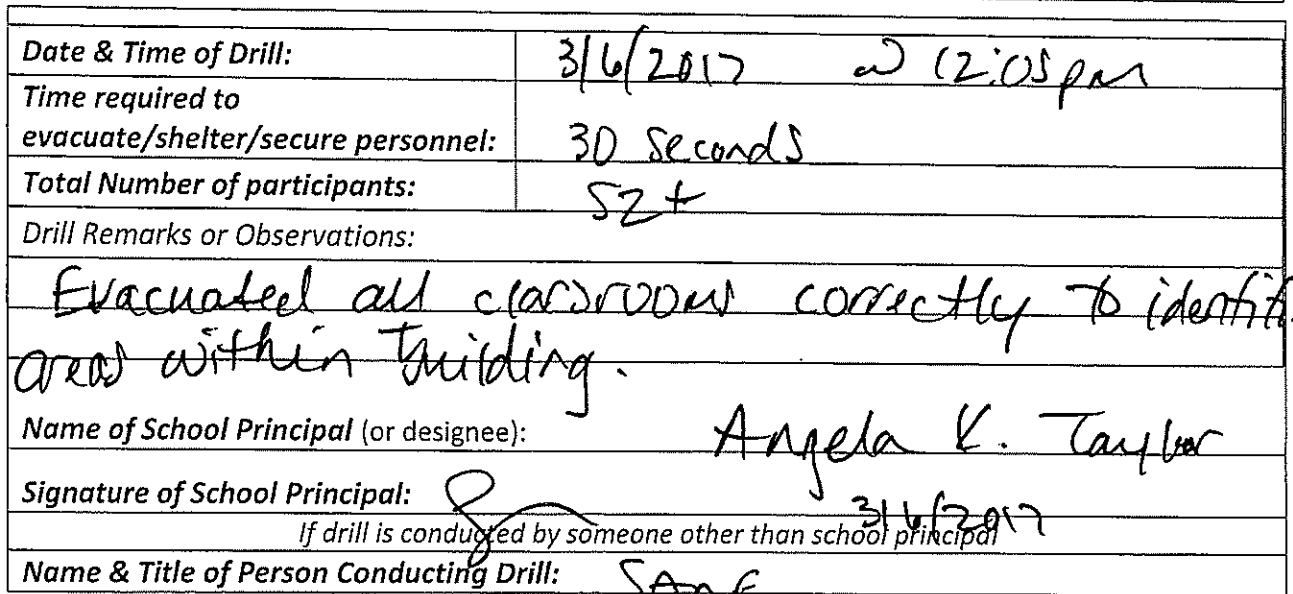 Date & Time of Drill: 3/6/2017 @ 12:05pm
Time required to
evacuate/shelter/secure personnel: 30 seconds
Total Number of participants: 52+
Drill Remarks or Observations:
Evacuated all classrooms correctly to identifi
areas within building.
Name of School Principal (or designee): Angela K. Taylor
Signature of School Principal: 3/6/2017
If drill is conducted by someone other than school principal
Name & Title of Person Conducting Drill: SAME